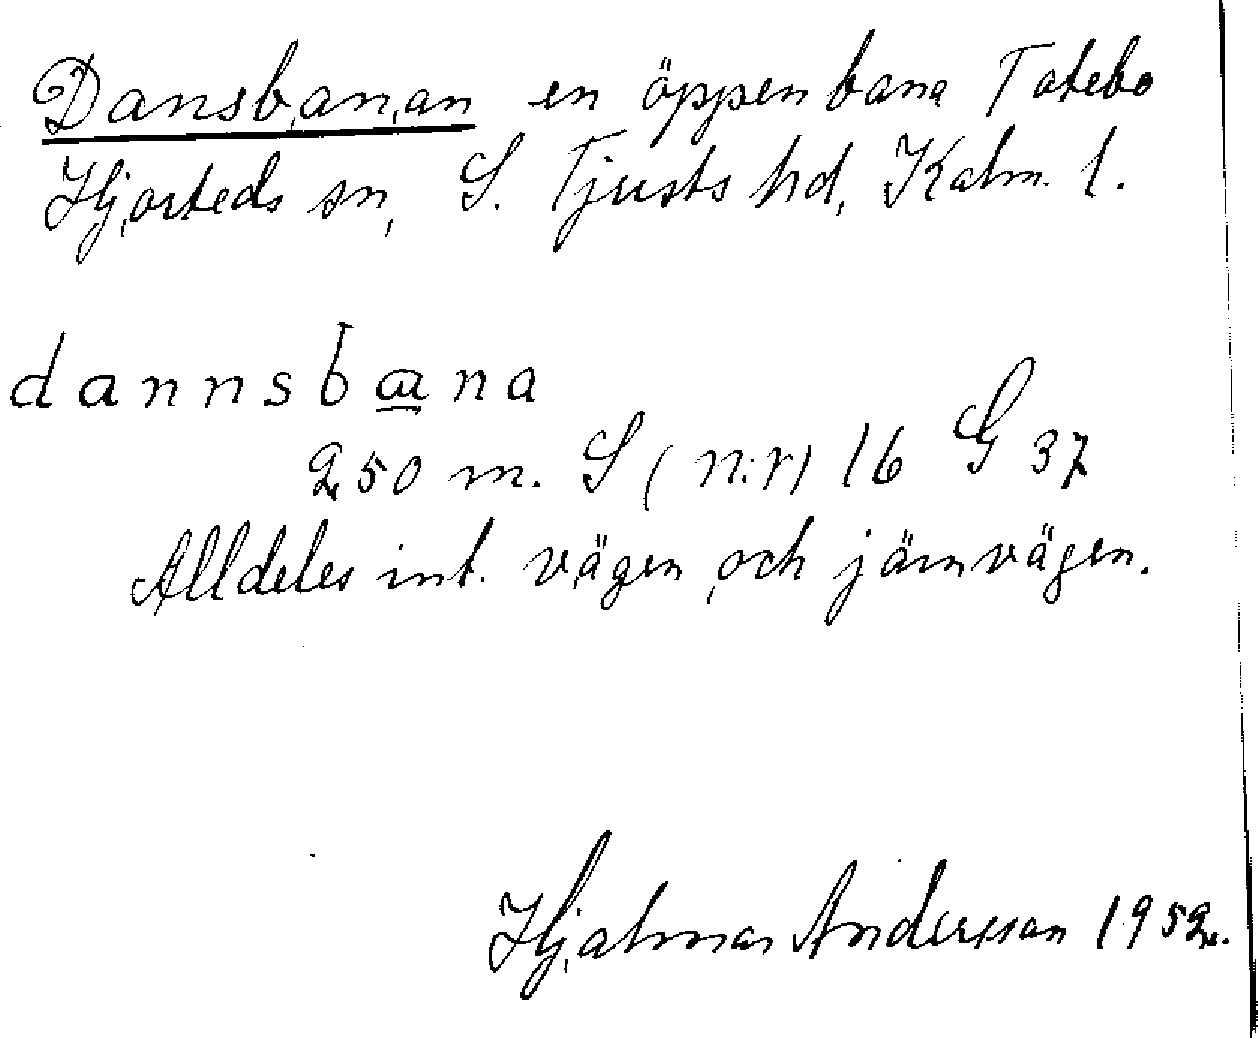 Dansbanan en öppen bana Totebo
Hjorteds sn, S. Tjusts hd, Kalm. l.
dannsbana
250 m. S (n:r) 16 G 37
Alldeles int. vägen och järnvägen.
Hjalmar Andersson 1952.